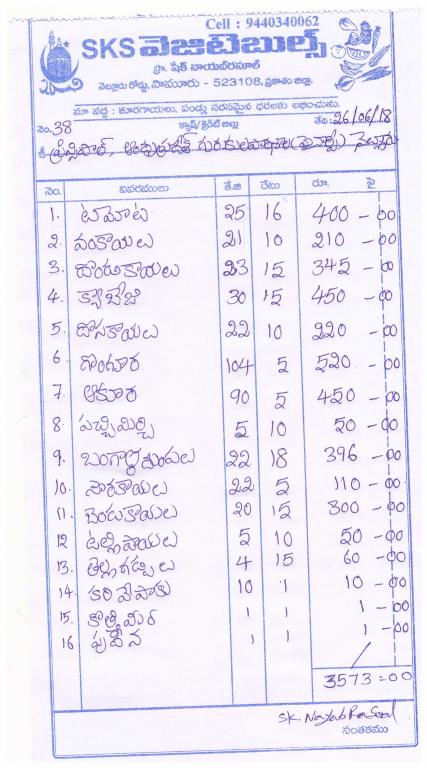 Cell : 9440340062
SKS వెజిటెబుల్స్
ప్రొ. షేక్ నాయబ్‌రసూల్
నెల్లూరు రోడ్డు, పామూరు - 523108, ప్రకాశం జిల్లా.
మా వద్ద : కూరగాయలు, పండ్లు సరసమైన ధరలకు లభించును.
నెం. 38 క్యాష్/క్రెడిట్ బిల్లు తేది: 26/06/18
శ్రీ ప్రిన్సిపాల్, ఆంధ్రప్రదేశ్ గురుకుల పాఠశాల (మైనార్టీ) నెల్లూరు
నెం. వివరములు కే.జి రేటు రూ. పై
1. టమోట 25 16 400 - 00
2. వంకాయలు 21 10 210 - 00
3. దొండకాయలు 23 15 345 - 00
4. క్యాబేజి 30 15 450 - 00
5. దోసకాయలు 22 10 220 - 00
6 గొంగూర 104 5 520 - 00
7. ఆకూర 90 5 450 - 00
8. పచ్చిమిర్చి 5 10 50 - 00
9. బంగాళదుంపలు 22 18 396 - 00
10. సొరకాయలు 22 5 110 - 00
11. బెండకాయలు 20 15 300 - 00
12 ఉల్లిపాయలు 5 10 50 - 00
13. తెల్లగడ్డలు 4 15 60 - 00
14. కరివేపాకు 10 1 10 - 00
15. కొత్తిమీర 1 1 1 - 00
16 పుదీన 1 1 1 - 00
3573 = 00
SK. Nayab Rasool
సంతకము